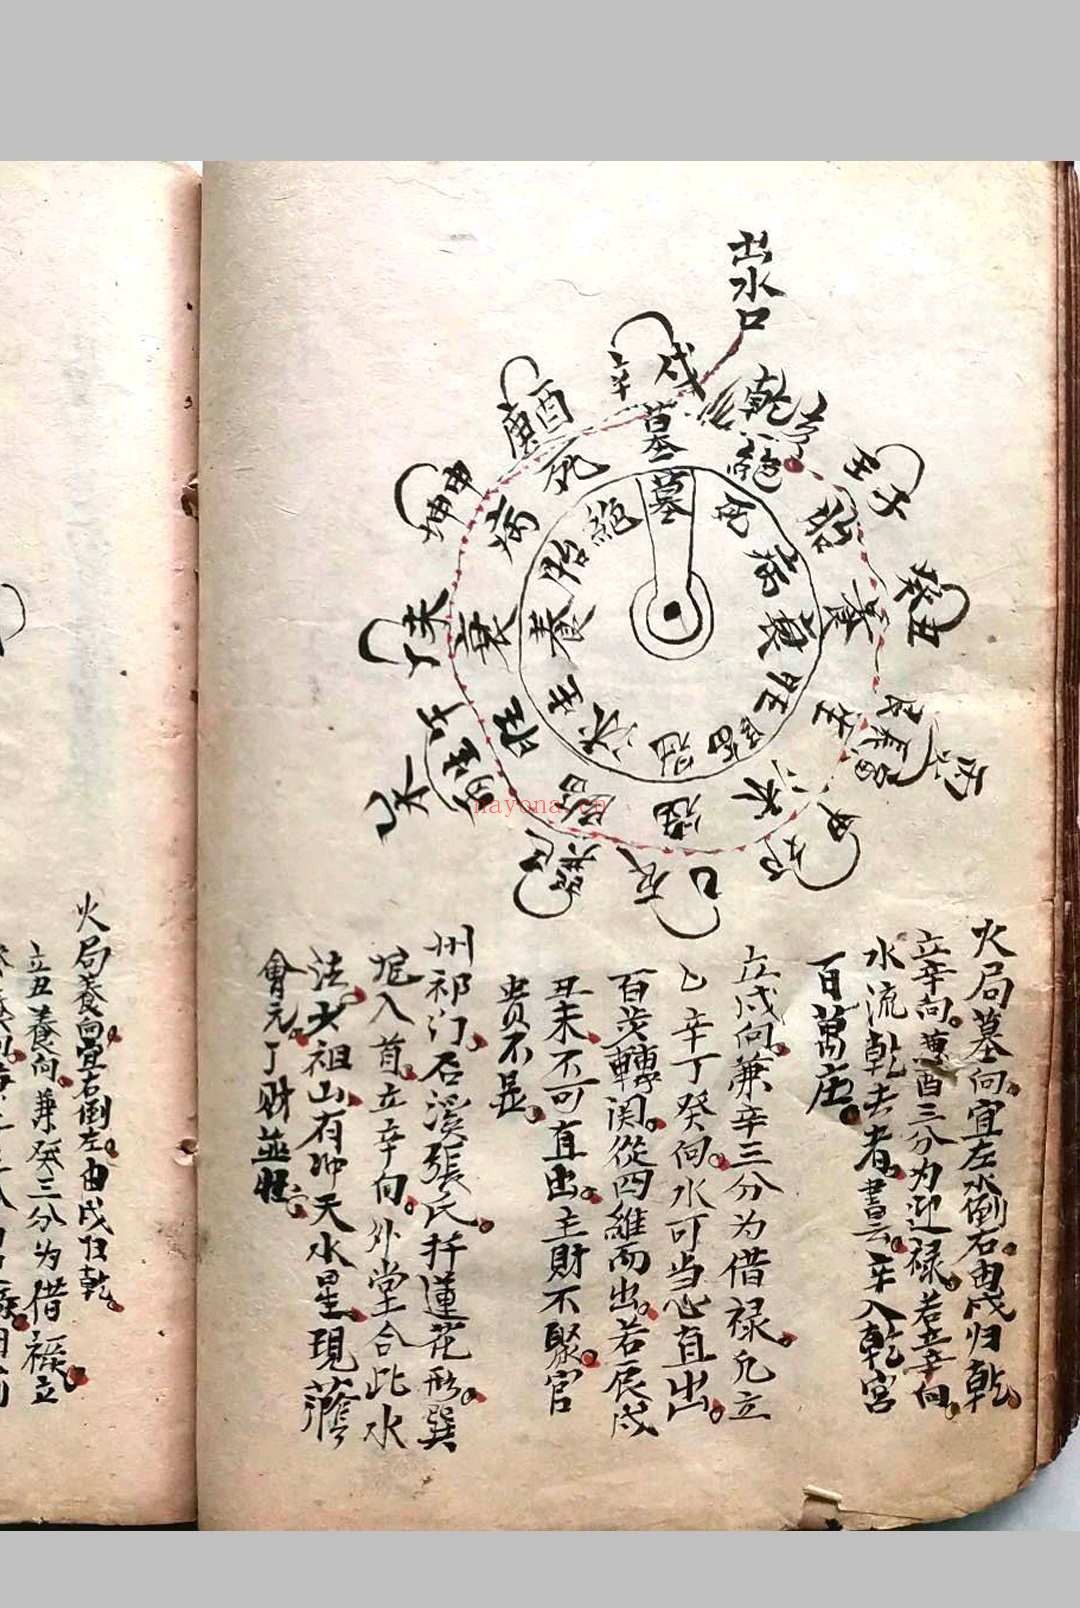 出水口
辛戌
乾亥
壬子
癸丑
艮寅
甲卯
辰
巳
丁未
坤申
庚酉
午
墓
絕
胎
養
生
沐
冠
臨
旺
衰
病
死
墓
死
病
衰
旺
臨
冠
沐
生
養
胎
絕
nayona.cn
火局墓向宜左水倒右由戌归乾
立辛向兼酉三分为迎禄若立辛向
水流乾去者書云辛入乾宮
百萬庄
立戌向兼辛三分为借禄凢立
乙辛丁癸向水可当心直出
百步轉関從四維而出若辰戌
丑未不可直出主財不聚官
贵不显
州祁门石溪張氏扦蓮花形巽
入首立辛向外堂合此水
法太祖山有冲天水星現
會元丁财並旺
火局養向宜右倒左由戌归乾
立丑養向兼癸三分为借禄立